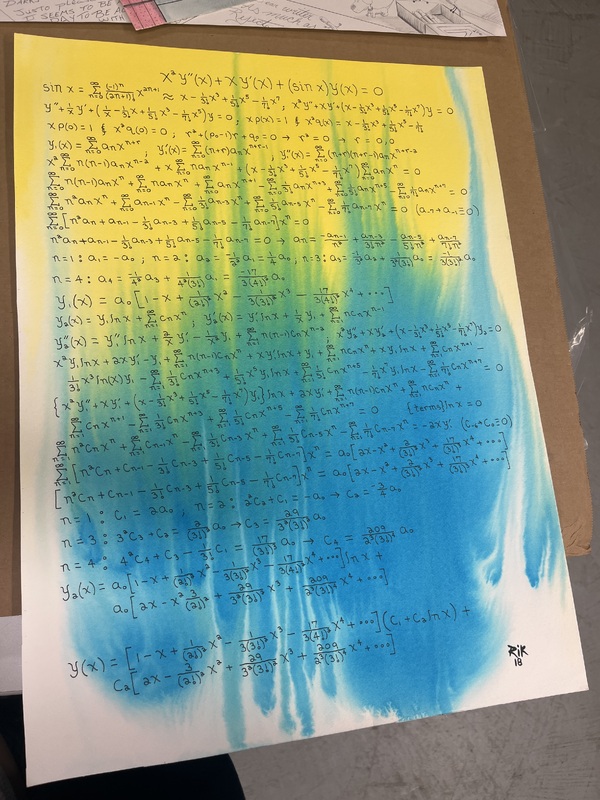 DARK
JUST TO PLEASE
SEEMS TO BE A
TO BE A
WITH
x²y''(x) + xy'(x) + (sin x)y(x) = 0
sin x = ∞Σn=0 (-1)ⁿ/(2n+1)! x²ⁿ⁺¹ ≈ x - 1/3! x³ + 1/5! x⁵ - 1/7! x⁷
y'' + 1/x y' + (1/x - 1/3! x + 1/5! x³ - 1/7! x⁵)y = 0, x²y'' + xy' + (x - 1/3! x³ + 1/5! x⁵ - 1/7! x⁷)y = 0
x p(0) = 1 & x²q(0) = 0; r² + (p₀-1)r + q₀ = 0 → r² = 0 → r = 0,0
y₁(x) = ∞Σn=0 anxⁿ⁺ʳ; y₁'(x) = ∞Σn=0 (n+r)anxⁿ⁺ʳ⁻¹, y₁''(x) = ∞Σn=0 (n+r)(n+r-1)anxⁿ⁺ʳ⁻²
x² ∞Σn=0 n(n-1)anxⁿ⁻² + x ∞Σn=0 nanxⁿ⁻¹ + (x - 1/3! x³ + 1/5! x⁵ - 1/7! x⁷) ∞Σn=0 anxⁿ = 0
∞Σn=0 n(n-1)anxⁿ + ∞Σn=0 nanxⁿ + ∞Σn=0 anxⁿ⁺¹ - ∞Σn=0 1/3! anxⁿ⁺³ + ∞Σn=0 1/5! anxⁿ⁺⁵ - ∞Σn=0 1/7! anxⁿ⁺⁷ = 0
∞Σn=0 n²anxⁿ + ∞Σn=0 an-1xⁿ - ∞Σn=0 1/3! an-3xⁿ + ∞Σn=0 1/5! an-5xⁿ - ∞Σn=0 1/7! an-7xⁿ = 0 (a-7→a-1=0)
∞Σn=0 [n²an + an-1 - 1/3! an-3 + 1/5! an-5 - 1/7! an-7]xⁿ = 0
n²an + an-1 - 1/3! an-3 + 1/5! an-5 - 1/7! an-7 = 0 → an = -an-1/n² + an-3/3!n² - an-5/5!n² + an-7/7!n²
n=1: a₁ = -a₀; n=2: a₂ = -1/2² a₁ = 1/4 a₀, n=3: a₃ = -1/3² a₂ + 1/3²(3!) a₀ = 1/3(3!)² a₀
n=4: a₄ = -1/4² a₃ + 1/4²(3!) a₁ = -17/3(4!)² a₀
y₁(x) = a₀[1 - x + 1/(2!)² x² - 1/3(3!)² x³ - 17/3(4!)² x⁴ + ···]
y₂(x) = y₁ ln x + ∞Σn=1 cnxⁿ; y₂'(x) = y₁' ln x + 1/x y₁ + ∞Σn=1 ncnxⁿ⁻¹
y₂''(x) = y₁'' ln x + 2/x y₁' - 1/x² y₁ + ∞Σn=1 n(n-1)cnxⁿ⁻²; x²y₂'' + xy₂' + (x - 1/3! x³ + 1/5! x⁵ - 1/7! x⁷)y₂ = 0
x²y₁'' ln x + 2xy₁' - y₁ + ∞Σn=1 n(n-1)cnxⁿ + xy₁' ln x + y₁ + ∞Σn=1 ncnxⁿ + xy₁ ln x + ∞Σn=1 cnxⁿ⁺¹ -
1/3! x³ ln(x)y₁ - ∞Σn=1 1/3! cnxⁿ⁺³ + 1/5! x⁵y₁ ln x + ∞Σn=1 1/5! cnxⁿ⁺⁵ - 1/7! x⁷y₁ ln x - ∞Σn=1 1/7! cnxⁿ⁺⁷ = 0
{x²y₁'' + xy₁' + (x - 1/3! x³ + 1/5! x⁵ - 1/7! x⁷)y₁} ln x + 2xy₁' + ∞Σn=1 n(n-1)cnxⁿ + ∞Σn=1 ncnxⁿ +
∞Σn=1 cnxⁿ⁺¹ - ∞Σn=1 1/3! cnxⁿ⁺³ + ∞Σn=1 1/5! cnxⁿ⁺⁵ - ∞Σn=1 1/7! cnxⁿ⁺⁷ = 0 {terms} ln x = 0
∞Σn=1 n²cnxⁿ + ∞Σn=1 cn-1xⁿ - ∞Σn=1 1/3! cn-3xⁿ + ∞Σn=1 1/5! cn-5xⁿ - ∞Σn=1 1/7! cn-7xⁿ = -2xy₁' (c-6→c₀=0)
∞Σn=1 [n²cn + cn-1 - 1/3! cn-3 + 1/5! cn-5 - 1/7! cn-7]xⁿ = a₀[2x - x² + 2/(3!)² x³ + 17/(3!)² x⁴ + ···]
[n²cn + cn-1 - 1/3! cn-3 + 1/5! cn-5 - 1/7! cn-7]xⁿ = a₀[2x - x² + 2/(3!)² x³ + 17/(3!)² x⁴ + ···]
n=1: c₁ = 2a₀, n=2: 2²c₂ + c₁ = -a₀ → c₂ = -3/4 a₀
n=3: 3²c₃ + c₂ = 2/(3!)² a₀ → c₃ = 29/3²(3!)² a₀
n=4: 4²c₄ + c₃ - 1/3! c₁ = 17/(3!)² a₀ → c₄ = 209/2³(3!)⁴ a₀
y₂(x) = a₀[1 - x + 1/(2!)² x² - 1/3(3!)² x³ - 17/3(4!)² x⁴ + ···] ln x +
a₀[2x - x² 3/(2!)² + 29/3²(3!)² x³ + 209/2³(3!)⁴ x⁴ + ···]
y(x) = [1 - x + 1/(2!)² x² - 1/3(3!)² x³ - 17/3(4!)² x⁴ + ···](c₁ + c₂ ln x) +
c₂[2x - 3/(2!)² x² + 29/3²(3!)² x³ + 209/2³(3!)⁴ x⁴ + ···]
RiK
18